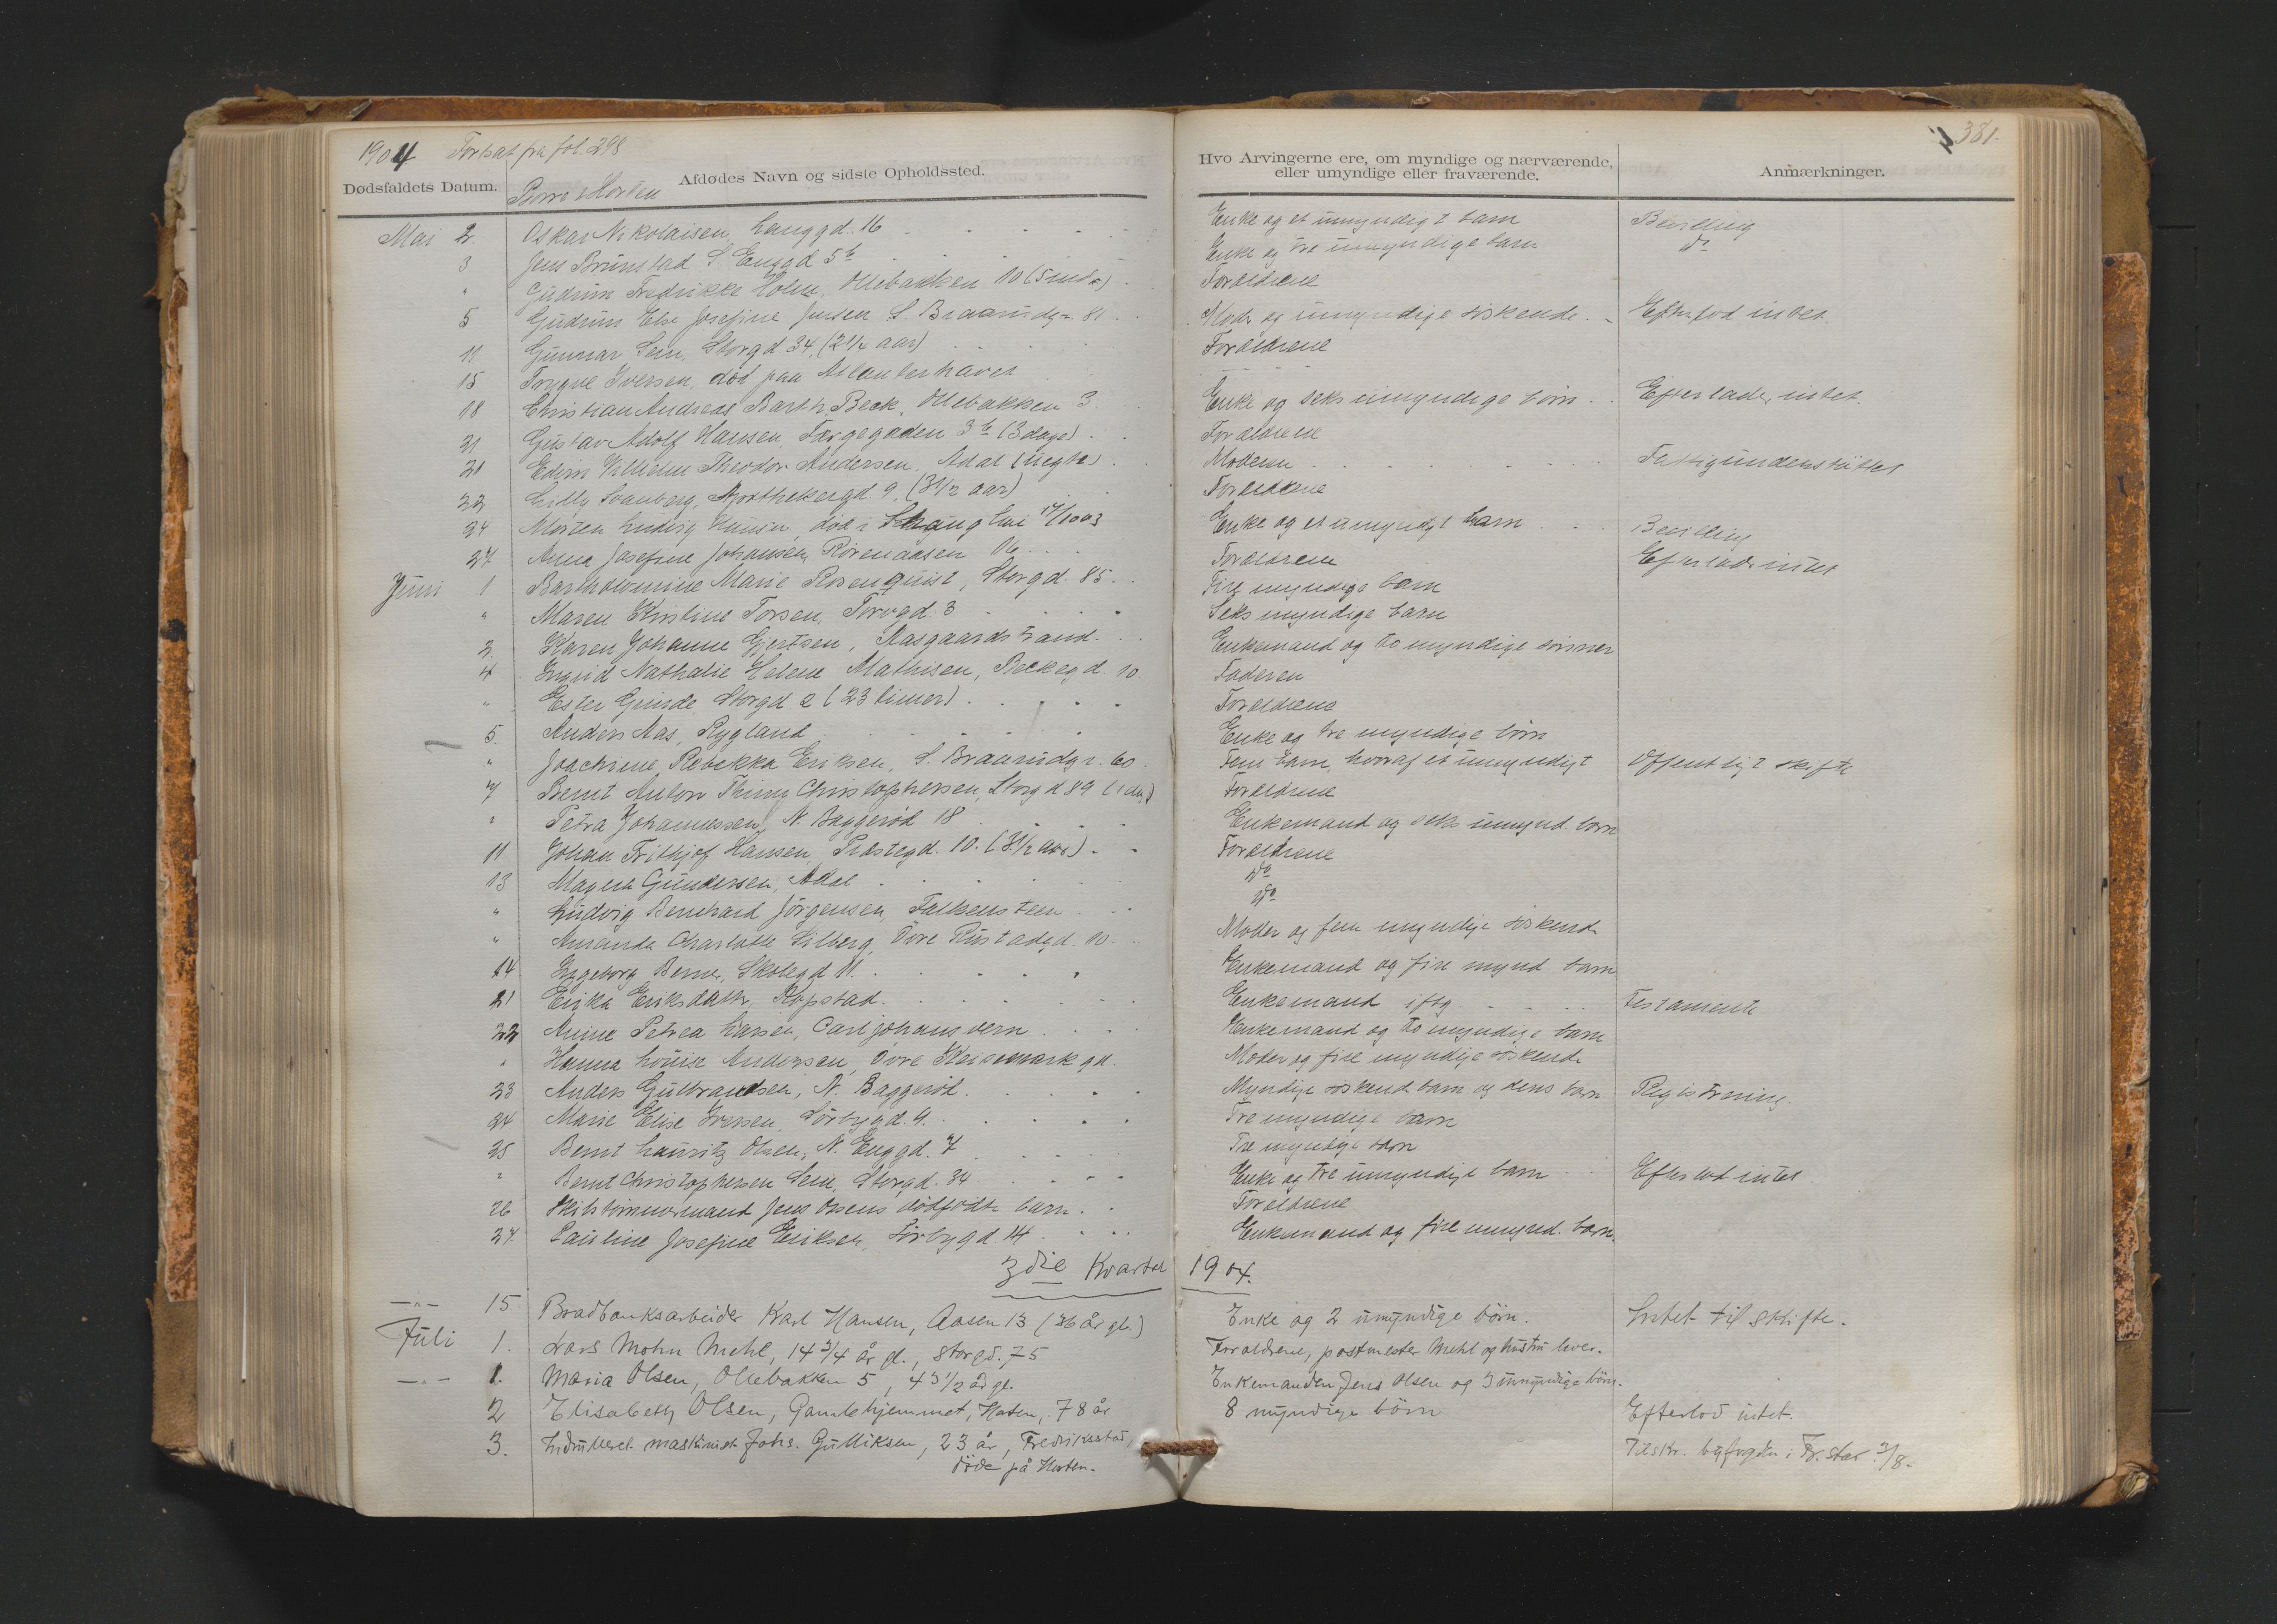 1904 Fortsat fra fol. 298
381.
Dødsfaldets Datum. Afdødes Navn og sidste Opholdssted. Hvo Arvingerne ere, om myndige og nærværende, eller umyndige eller fraværende. Anmærkninger.
Borre & Horten
Mai 2. Oskar Nikolaisen, Langgd. 16 Enke og et umyndigt barn Bevilling
3 Jens Brunstad S. Enggd 5b Enke og tre umyndige barn do
" Gudrun Fredrikke Holm, Ollebakken 10 Forældrene
5 Gudrun Else Josefine Jensen S. Braarudgt. 81 Moder og umyndige søskende Efterlod intet
11 Gunnar Sem, Storgd 34, (2 1/2 aar) Forældrene
15 Trygve Iversen, død paa Atlanterhavet
18 Christian Andreas Barth Beck, Ollebakken 3. Enke og seks umyndige børn Efterlader intet.
21 Gustav Adolf Hansen, Færgegaden 3b (3 dage) Forældrene
21 Edvin Vilhelm Theodor Andersen, Adal (uegte) Moderen Fattigunderstøttet
22 Lilly Svanberg, Apothekergd. 9, (3 1/2 aar) Forældrene
24 Morten Ludvig Hansen, død i Shanghai Enke og et umyndigt barn Bevilling
27 Anna Josefine Johansen, Rørenaasen 16 Forældrene Efterlader intet
Juni 1 Bartholomine Marie Rosenquist, Storgd. 85. Fire myndige barn
" Maren Kristine Torsen, Torvgd. 3 Seks myndige barn
2. Karen Johanne Gjertsen, Aasgaardstrand. Enkemand og to myndige sønner
4 Ingrid Nathalie Helene Mathisen, Beckegd. 10. Faderen
" Ester Grinde, Storgd. 2 (23 timer) Forældrene
5. Anders Aas, Rygland Enke og tre myndige børn
" Joachime Rebekka Eriksen, S. Braarudgt. 60. Fem barn, hvoraf et umyndigt Offentligt skifte
7 Bernt Anton Christophersen, Storgd 89 Forældrene
" Petra Johannessen, N. Baggerød 18 Enkemand og seks umynd. børn
11 Johan Frithjof Hansen, Præstegd. 10. (3 1/2 aar) Forældrene
13 Magna Gundersen, Adal do
" Ludvig Bernhard Jørgensen, Falkensteen do
" Amanda Charlotte Silberg, Øvre Rustadgd. 10. Moder og fem myndige søskende
14 Ingeborg Berner, Skolegd 11. Enkemand og fire mynd. barn
21 Erika Eriksdatter, Kopstad. Enkemand Testamente
22 Anne Petrea Larsen, Carljohansvern Enkemand og to myndige barn
" Hanna Louise Andersen, Øvre Keisemarkgd. Moder og fire myndige søskende
23 Anders Gulbrandsen, N. Baggerød. Myndige søskendebarn og dens barn Registrering.
24 Marie Elise Iversen, Sørbygd. 9. Tre myndige barn
25 Bernt Lauritz Olsen, N. Enggd. 7 Tre myndige barn
" Bernt Christophersen Sem, Storgd. 34 Enke og tre umyndige barn Efterlod intet
26 Skibstømmermand Jens Olsens dødfødte barn. Forældrene
27. Pauline Josefine Eriksen, Sørbygd 14 Enkemand og fire umynd. barn.
3die Kvartal 1904.
—"— 15. Brødbanksarbeider Karl Hansen, Aasen 13 (36 år gl.) Enke og 2 umyndige børn. Intet til skifte.
Juli 1. Lars Mohn Mehl, 14 3/4 år gl., Storgd. 75 Forældrene, postmester Mehl og hustru lever.
—"— 1. Maria Olsen, Ollebakken 5, 43 1/2 år gl. Enkemanden Jens Olsen og 3 umyndige børn.
2 Elisabeth Olsen, Gamlehjemmet, Horten, 78 år 8 myndige børn Efterlod intet.
3. maskinist Johs. Gulliksen, 23 år, Fredriksstad, Tilskr. byfogden i Fr.stad 2/8.
døde på Horten.